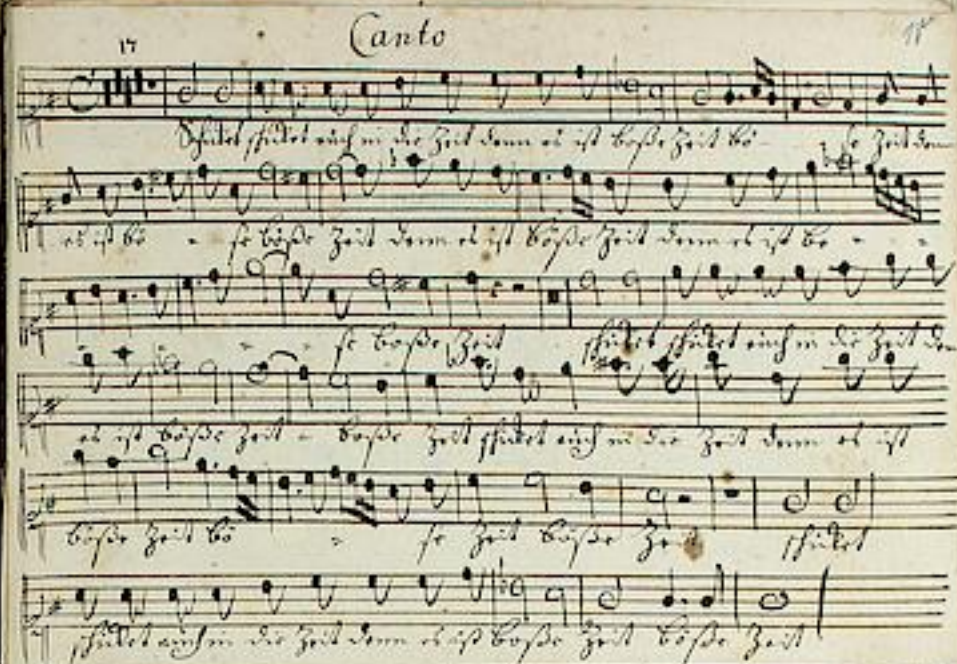 Canto
17
Schicket schicket euch in die Zeit denn es ist böße Zeit bö - se Zeit denn
es ist bö - - se böße Zeit denn es ist böße Zeit denn es ist bö - -
- - - se böße Zeit schicket schicket euch in die Zeit den
es ist böße Zeit - böße Zeit schicket euch in die Zeit denn es ist
böße Zeit bö - se Zeit böße Zeit schicket
schicket euch in die Zeit denn es ist böße Zeit böße Zeit